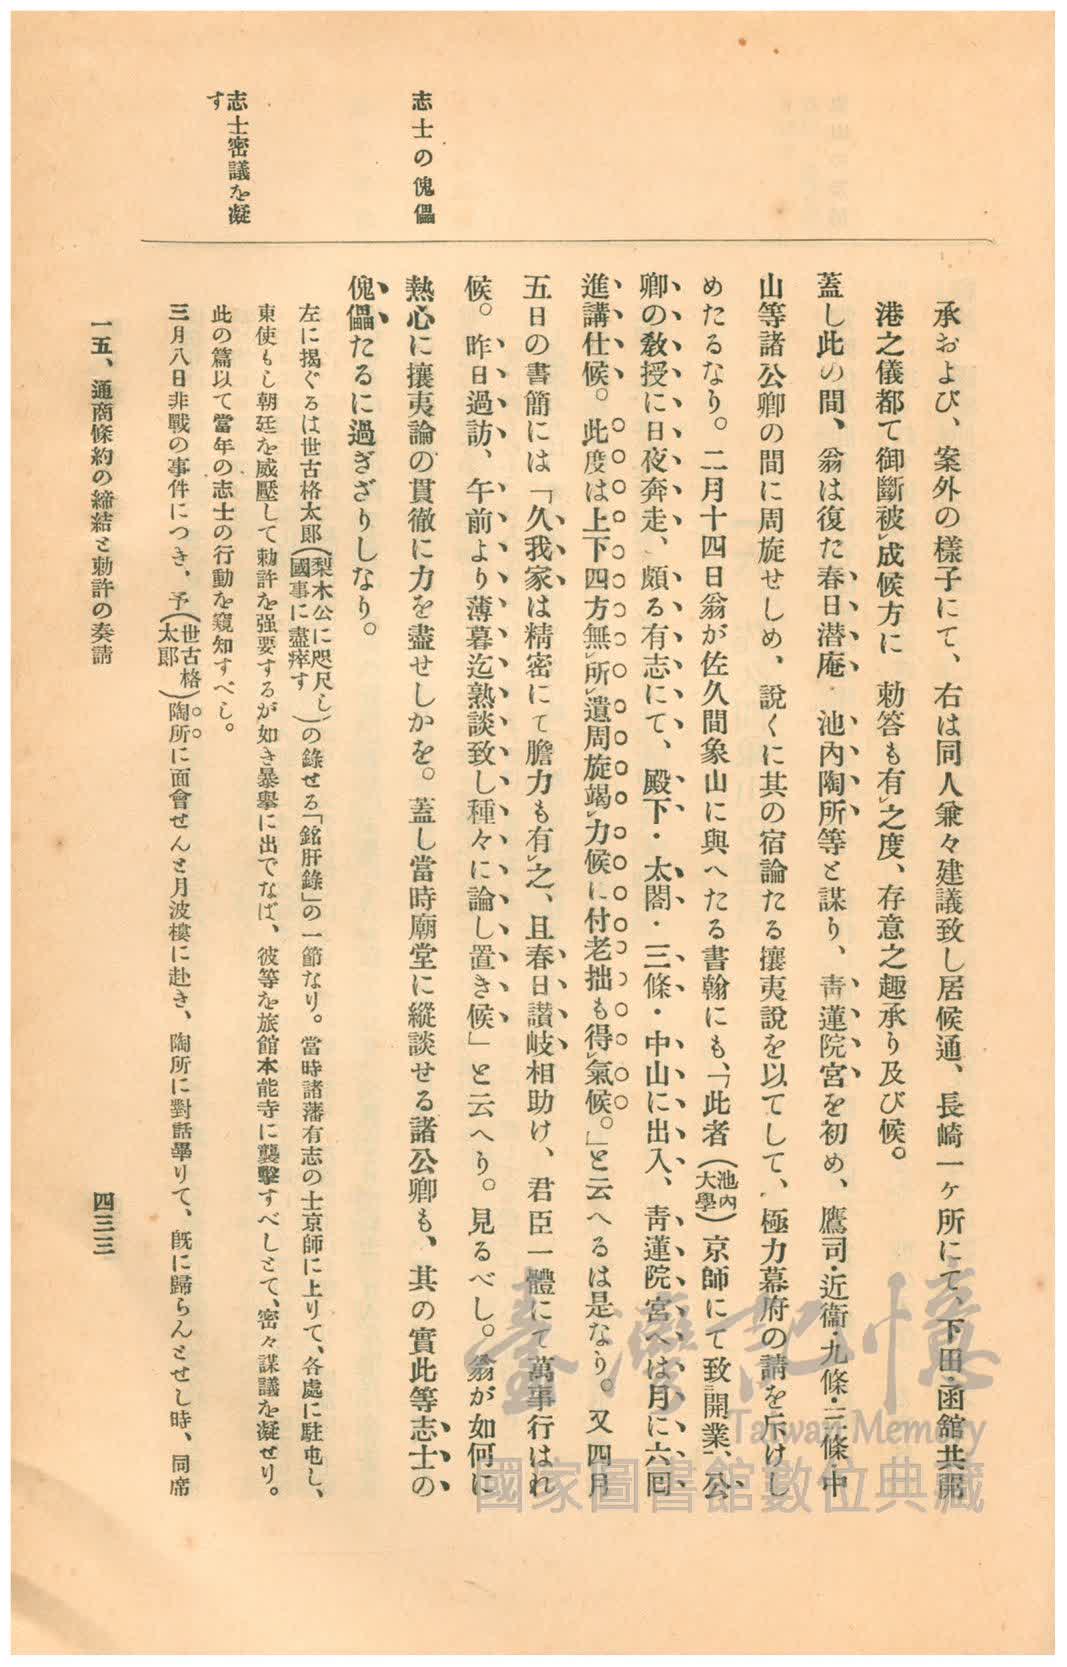 承および、案外の樣子にて、右は同人兼々建議致し居候通、長崎一ヶ所にて、下田・函館共開
港之儀都て御斷被㆑成候方に　勅答も有㆑之度、存意之趣承り及び候。
蓋し此の間、翁は復た春日潜庵・池內陶所等と謀り、靑蓮院宮を初め、鷹司・近衞・九條・三條・中
山等諸公卿の間に周旋せしめ、說くに其の宿論たる攘夷說を以てして、極力幕府の請を斥けし
めたるなり。二月十四日翁が佐久間象山に與へたる書翰にも、「此者（池內大學）京師にて致㆓開業㆒、公
卿の敎授に日夜奔走、頗る有志にて、殿下・太閤・三條・中山に出入、靑蓮院宮へは月に六回
進講仕候。此度は上下四方無㆑所㆑遺周旋竭㆑力候に付老拙も得㆑氣候。」と云へるは是なり。又四月
五日の書簡には「久我家は精密にて膽力も有㆑之、且春日讃岐相助け、君臣一體にて萬事行はれ
候。昨日過訪、午前より薄暮迄熟談致し種々に論し置き候」と云へり。見るべし。翁が如何に
志士の傀儡
熱心に攘夷論の貫徹に力を盡せしかを。蓋し當時廟堂に縱談せる諸公卿も、其の實此等志士の
傀儡たるに過ぎざりしなり。
左に揭ぐるは世古格太郞（梨木公に咫尺し國事に盡瘁す）の錄せる「銘肝錄」の一節なり。當時諸藩有志の士京師に上りて、各處に駐屯し、
志士密議を凝
す
東使もし朝廷を威壓して勅許を强要するが如き暴擧に出でなば、彼等を旅館本能寺に襲擊すべしとて、密々謀議を凝せり。
此の篇以て當年の志士の行動を窺知すべし。
三月八日非戰の事件につき、予（世古格太郞）陶所に面會せんと月波樓に赴き、陶所に對話畢りて、旣に歸らんとせし時、同席
一五、通商條約の締結と勅許の奏請
四三三
臺灣記憶
Taiwan Memory
國家圖書館數位典藏